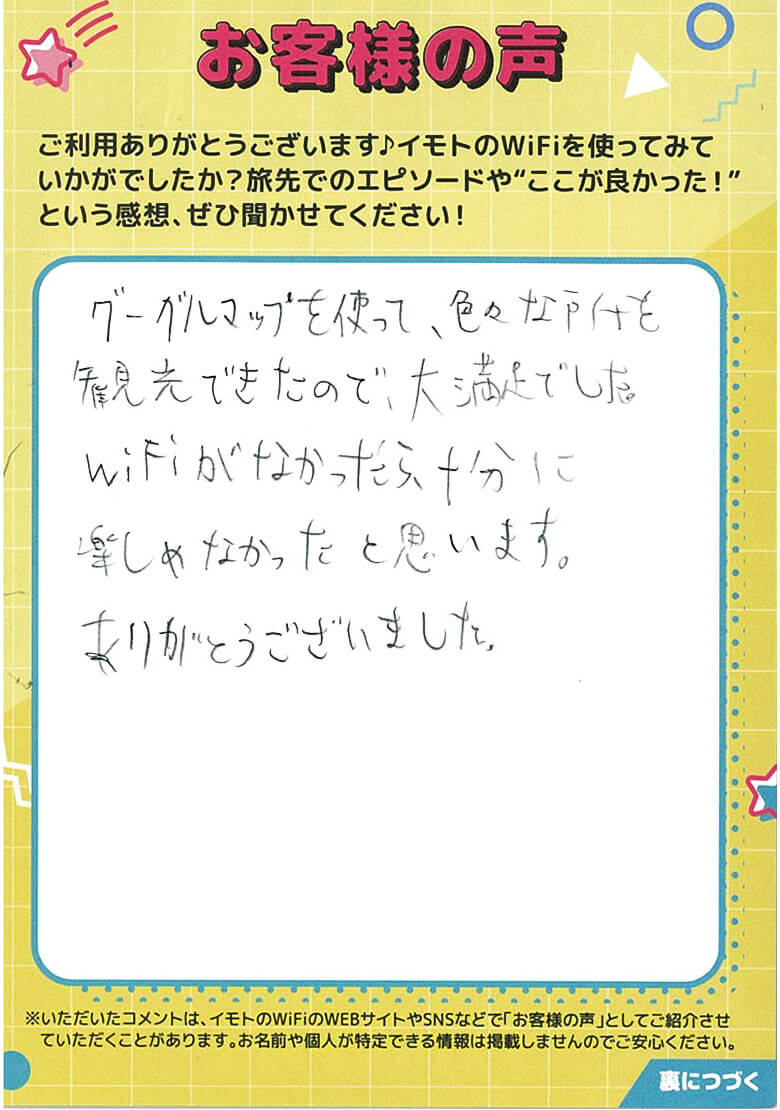 お客様の声
ご利用ありがとうございます♪イモトのWiFiを使ってみて
いかがでしたか?旅先でのエピソードや“ここが良かった!”
という感想、ぜひ聞かせてください!
グーグルマップを使って、色々な所を
観光できたので、大満足でした。
WiFiがなかったら、十分に
楽しめなかったと思います。
ありがとうございました。
※いただいたコメントは、イモトのWiFiのWEBサイトやSNSなどで「お客様の声」としてご紹介させ
ていただくことがあります。お名前や個人が特定できる情報は掲載しませんのでご安心ください。
裏につづく